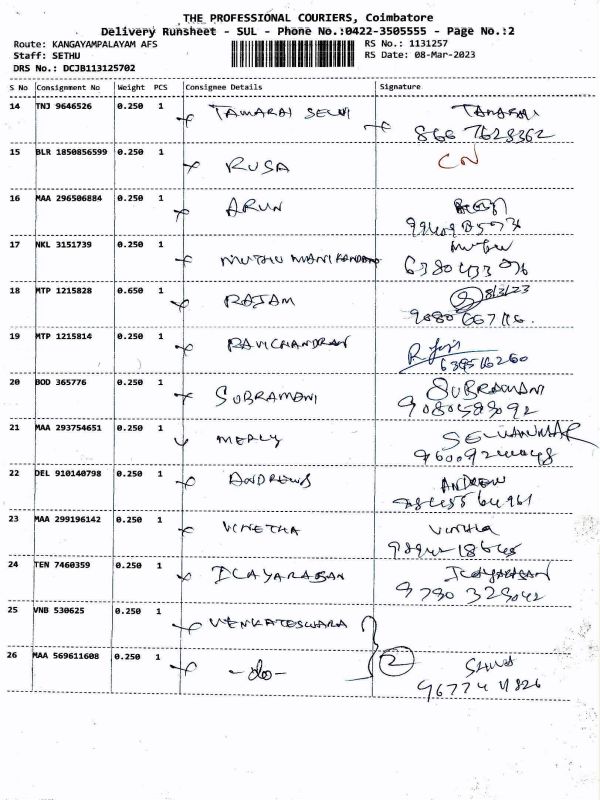 THE PROFESSIONAL COURIERS, Coimbatore
Delivery Runsheet - SUL - Phone No.:0422-3505555 - Page No.:2
Route: KANGAYAMPALAYAM AFS
RS No.: 1131257
Staff: SETHU
RS Date: 08-Mar-2023
DRS No.: DCJB113125702
S No Consignment No Weight PCS Consignee Details Signature
14 TNJ 9646526 0.250 1 TAMARAI SELVI TAMARAI
866 7628362
15 BLR 1850856599 0.250 1 RUSA CN
16 MAA 296506884 0.250 1 ARUN
17 NKL 3151739 0.250 1 MUTHU MANIKANDAN
18 MTP 1215828 0.650 1 RAJAM 8/3/23
19 MTP 1215814 0.250 1 RAVICHANDRAN
20 BOD 365776 0.250 1 SUBRAMANI SUBRAMANI
9080589092
21 MAA 293754651 0.250 1 MERLY
22 DEL 910140798 0.250 1 ANDREWS ANDREW
23 MAA 299196142 0.250 1 VINETHA
24 TEN 7460359 0.250 1 ILAYARAJAN
9790 329042
25 VNB 530625 0.250 1 VENKATESWARA
26 MAA 569611608 0.250 1 -do- 2